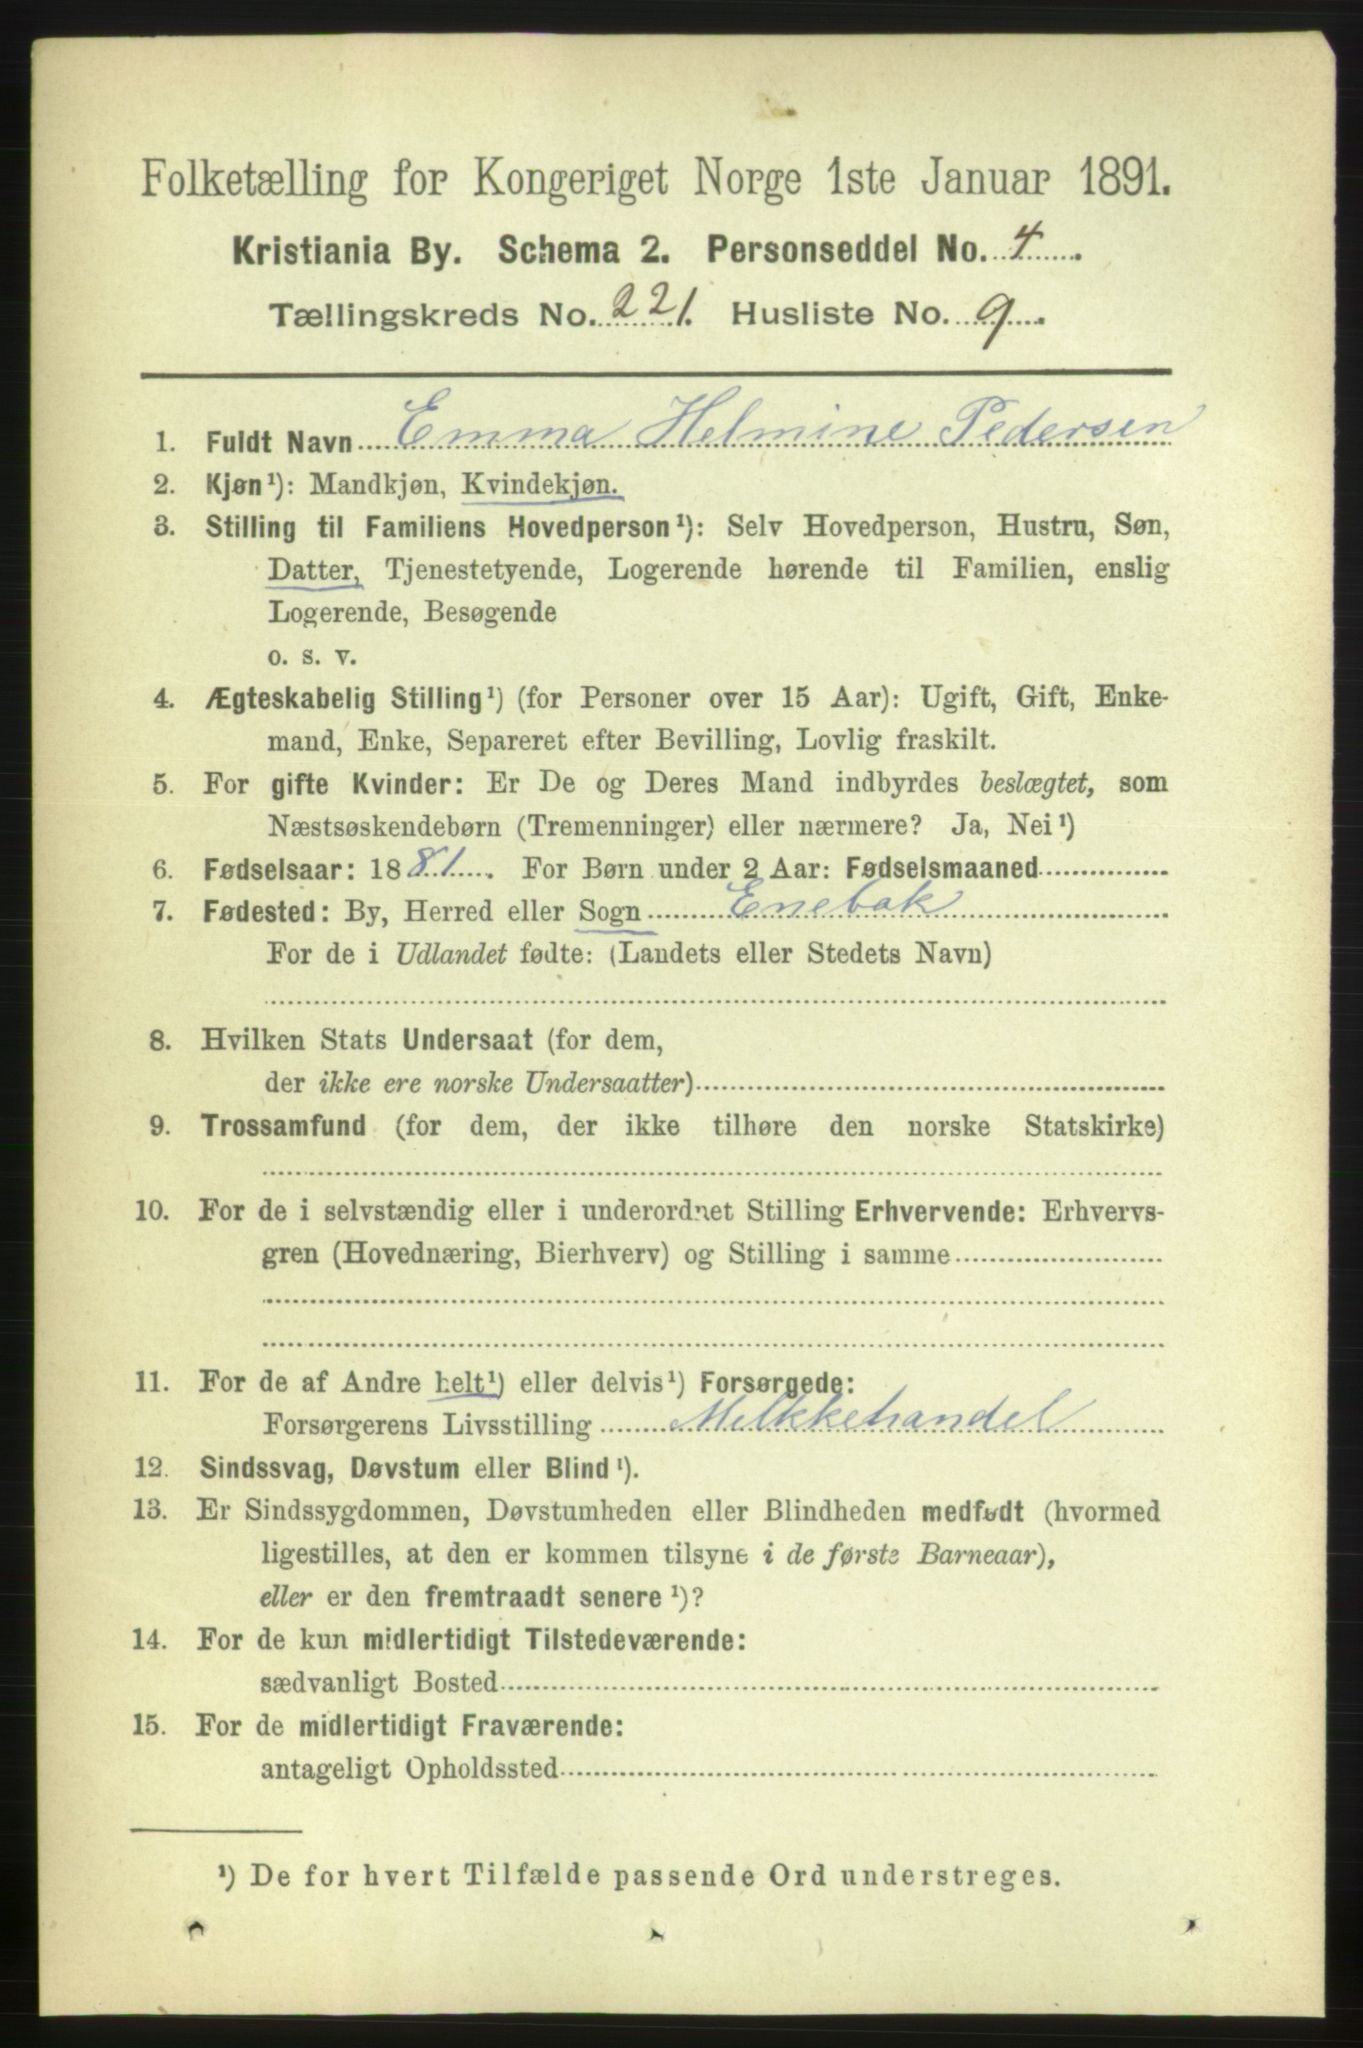 Folketælling for Kongeriget Norge 1ste Januar 1891.
Kristiania By. Schema 2. Personseddel No. 4
Tællingskreds No. 221. Husliste No. 9
1. Fuldt Navn Emma Helmine Pedersen
2. Kjøn¹): Mandkjøn, Kvindekjøn.
3. Stilling til Familiens Hovedperson¹): Selv Hovedperson, Hustru, Søn,
Datter, Tjenestetyende, Logerende hørende til Familien, enslig
Logerende, Besøgende
o. s. v.
4. Ægteskabelig Stilling¹) (for Personer over 15 Aar): Ugift, Gift, Enke-
mand, Enke, Separeret efter Bevilling, Lovlig fraskilt.
5. For gifte Kvinder: Er De og Deres Mand indbyrdes beslægtet, som
Næstsøskendebørn (Tremenninger) eller nærmere? Ja, Nei¹)
6. Fødselsaar: 1881. For Børn under 2 Aar: Fødselsmaaned
7. Fødested: By, Herred eller Sogn Enebak
For de i Udlandet fødte: (Landets eller Stedets Navn)
8. Hvilken Stats Undersaat (for dem,
der ikke ere norske Undersaatter)
9. Trossamfund (for dem, der ikke tilhøre den norske Statskirke)
10. For de i selvstændig eller i underordnet Stilling Erhvervende: Erhvervs-
gren (Hovednæring, Bierhverv) og Stilling i samme
11. For de af Andre helt¹) eller delvis¹) Forsørgede:
Forsørgerens Livsstilling Melkkehandel
12. Sindssvag, Døvstum eller Blind¹).
13. Er Sindssygdommen, Døvstumheden eller Blindheden medfødt (hvormed
ligestilles, at den er kommen tilsyne i de første Barneaar),
eller er den fremtraadt senere¹)?
14. For de kun midlertidigt Tilstedeværende:
sædvanligt Bosted
15. For de midlertidigt Fraværende:
antageligt Opholdssted
¹) De for hvert Tilfælde passende Ord understreges.